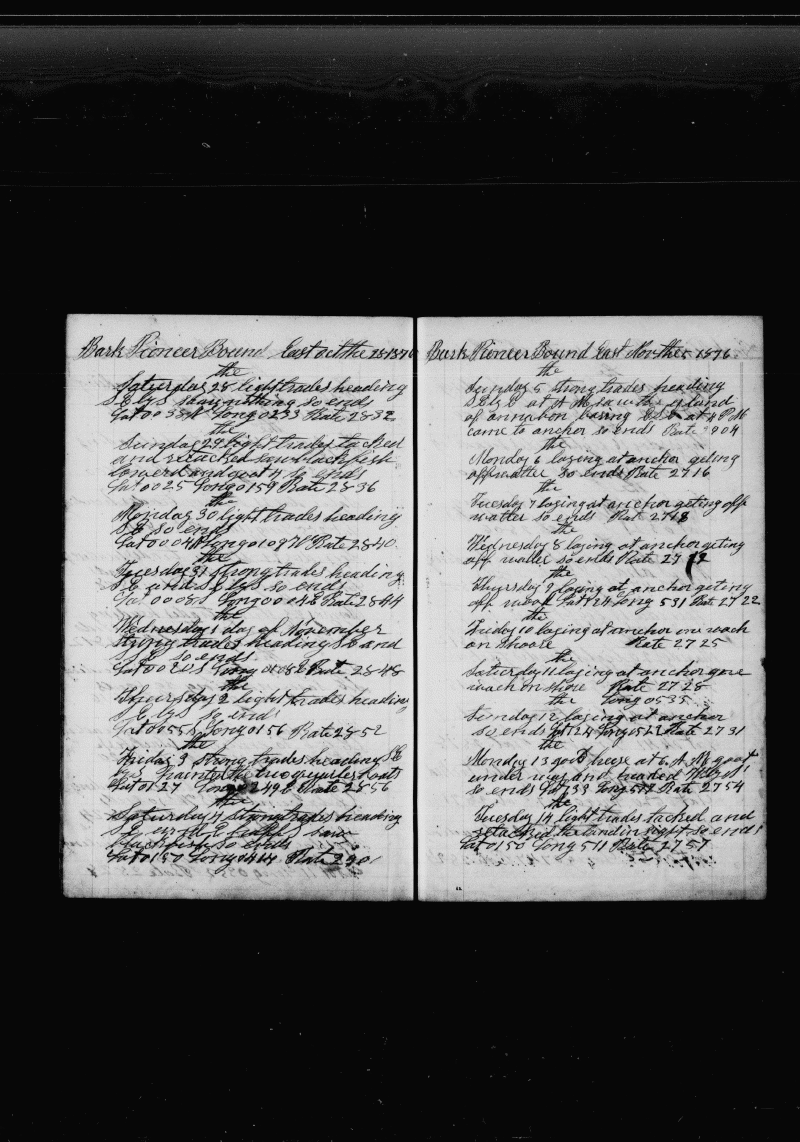 Bark Pioneer Bound East oct the 28 1876
the
Saturday 28 light trades heading
S E by S saw nothing so ends
Lat 00 35 N Long 02 33 Rate 28 32
the
Sunday 29 light trades tacked
and retacked saw blackfish
lowerd and got 4 so ends
Lat 00 25 Long 01 59 Rate 28 36
the
Monday 30 light trades heading
S E so ends
Lat 00 04 N Long 01 09 W Rate 28 40
the
Tuesday 31 strong trades heading
S E and S E by S so ends
Lat 00 08 S Long 00 14 E Rate 28 44
the
Wednesday 1 day of November
strong trades heading SE and
so ends
Lat 00 20 S Long 01 08 E Rate 28 48
the
Thursday 2 light trades heading
S E by S so ends
Lat 00 55 S Long 01 56 Rate 28 52
the
Friday 3 strong trades heading SE
by S painted the two quarter boats
Lat 01 27 Long 2 49 E Rate 28 56
the
Saturday 4 strong trades heading
S E saw
blackfish so ends
Lat 01 50 Long 04 14 Rate 290
Bark Pioneer Bound East Nov the 5 1876
the
Sunday 5 strong trades heading
SE by E at A M saw the land
of annabon baring ESE at 4 P M
came to anchor so ends Rate 2904
the
Monday 6 laying at anchor geting
off watter so ends Rate 27 16
the
Tuesday 7 laying at anchor geting off
watter so ends Rat 27 18
the
Wednesday 8 laying at anchor geting
off watter so ends Rate 27 12
the
Thursday 9 laying at anchor geting
off wood Lat 1 24 Long 5 31 Rate 27 22
the
Friday 10 laying at anchor one wach
on shoare Rate 27 25
the
Saturday 11 laying at anchor one
wach on shore Rate 27 28
the Long 05 35
Sunday 12 laying at anchor
so ends Lat 1 24 Long 05 25 Rate 27 31
the
Monday 13 good breese at 6 A M goot
under way and headed
so ends Lat 1 33 Long 5 17 Rate 27 54
the
Tuesday 14 light trades tacked and
retacked the land in sight so ends
Lat 01 50 Long 5 11 Rate 27 57